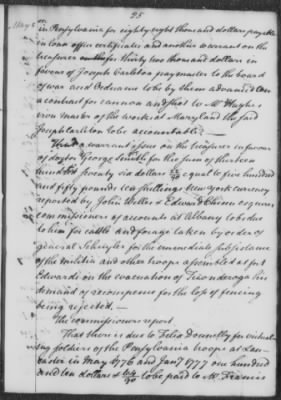 25
May 8
in Pensylvania for eighty eight thousand dollars payable
in loan office certificates and another warrant on the
treasurer for thirty two thousand dollars in
favour of Joseph Carleton paymaster to the board
of war and Ordnance to be by them advanced on
a contract for cannon and shot to Mr Hughes
iron master of the works at Maryland the said
Joseph Carleton to be accountable.
That a warrant issue on the treasurer in favour
of doctor George Smith for the sum of thirteen
hundred seventy six dollars equal to five hundred
and fifty pounds ten shillings New york currency
reported by John Welles & Edward Chinn esquires
commissioners of accounts at Albany to be due
to him for cattle and forage taken by order of
general Schuyler for the immediate subsistance
of the militia and other troops assembled at fort
Edward on the evacuation of Ticonderoga his
demand of recompense for the loss of fencing
being rejected.
The commissioners report
That there is due to Felix Donnelly for victual
ing soldiers of the Pensylvania troops at Lan
caster in May 1776 and Jany 1777 one hundred
and ten dollars & /90 to be paid to Mr Francis